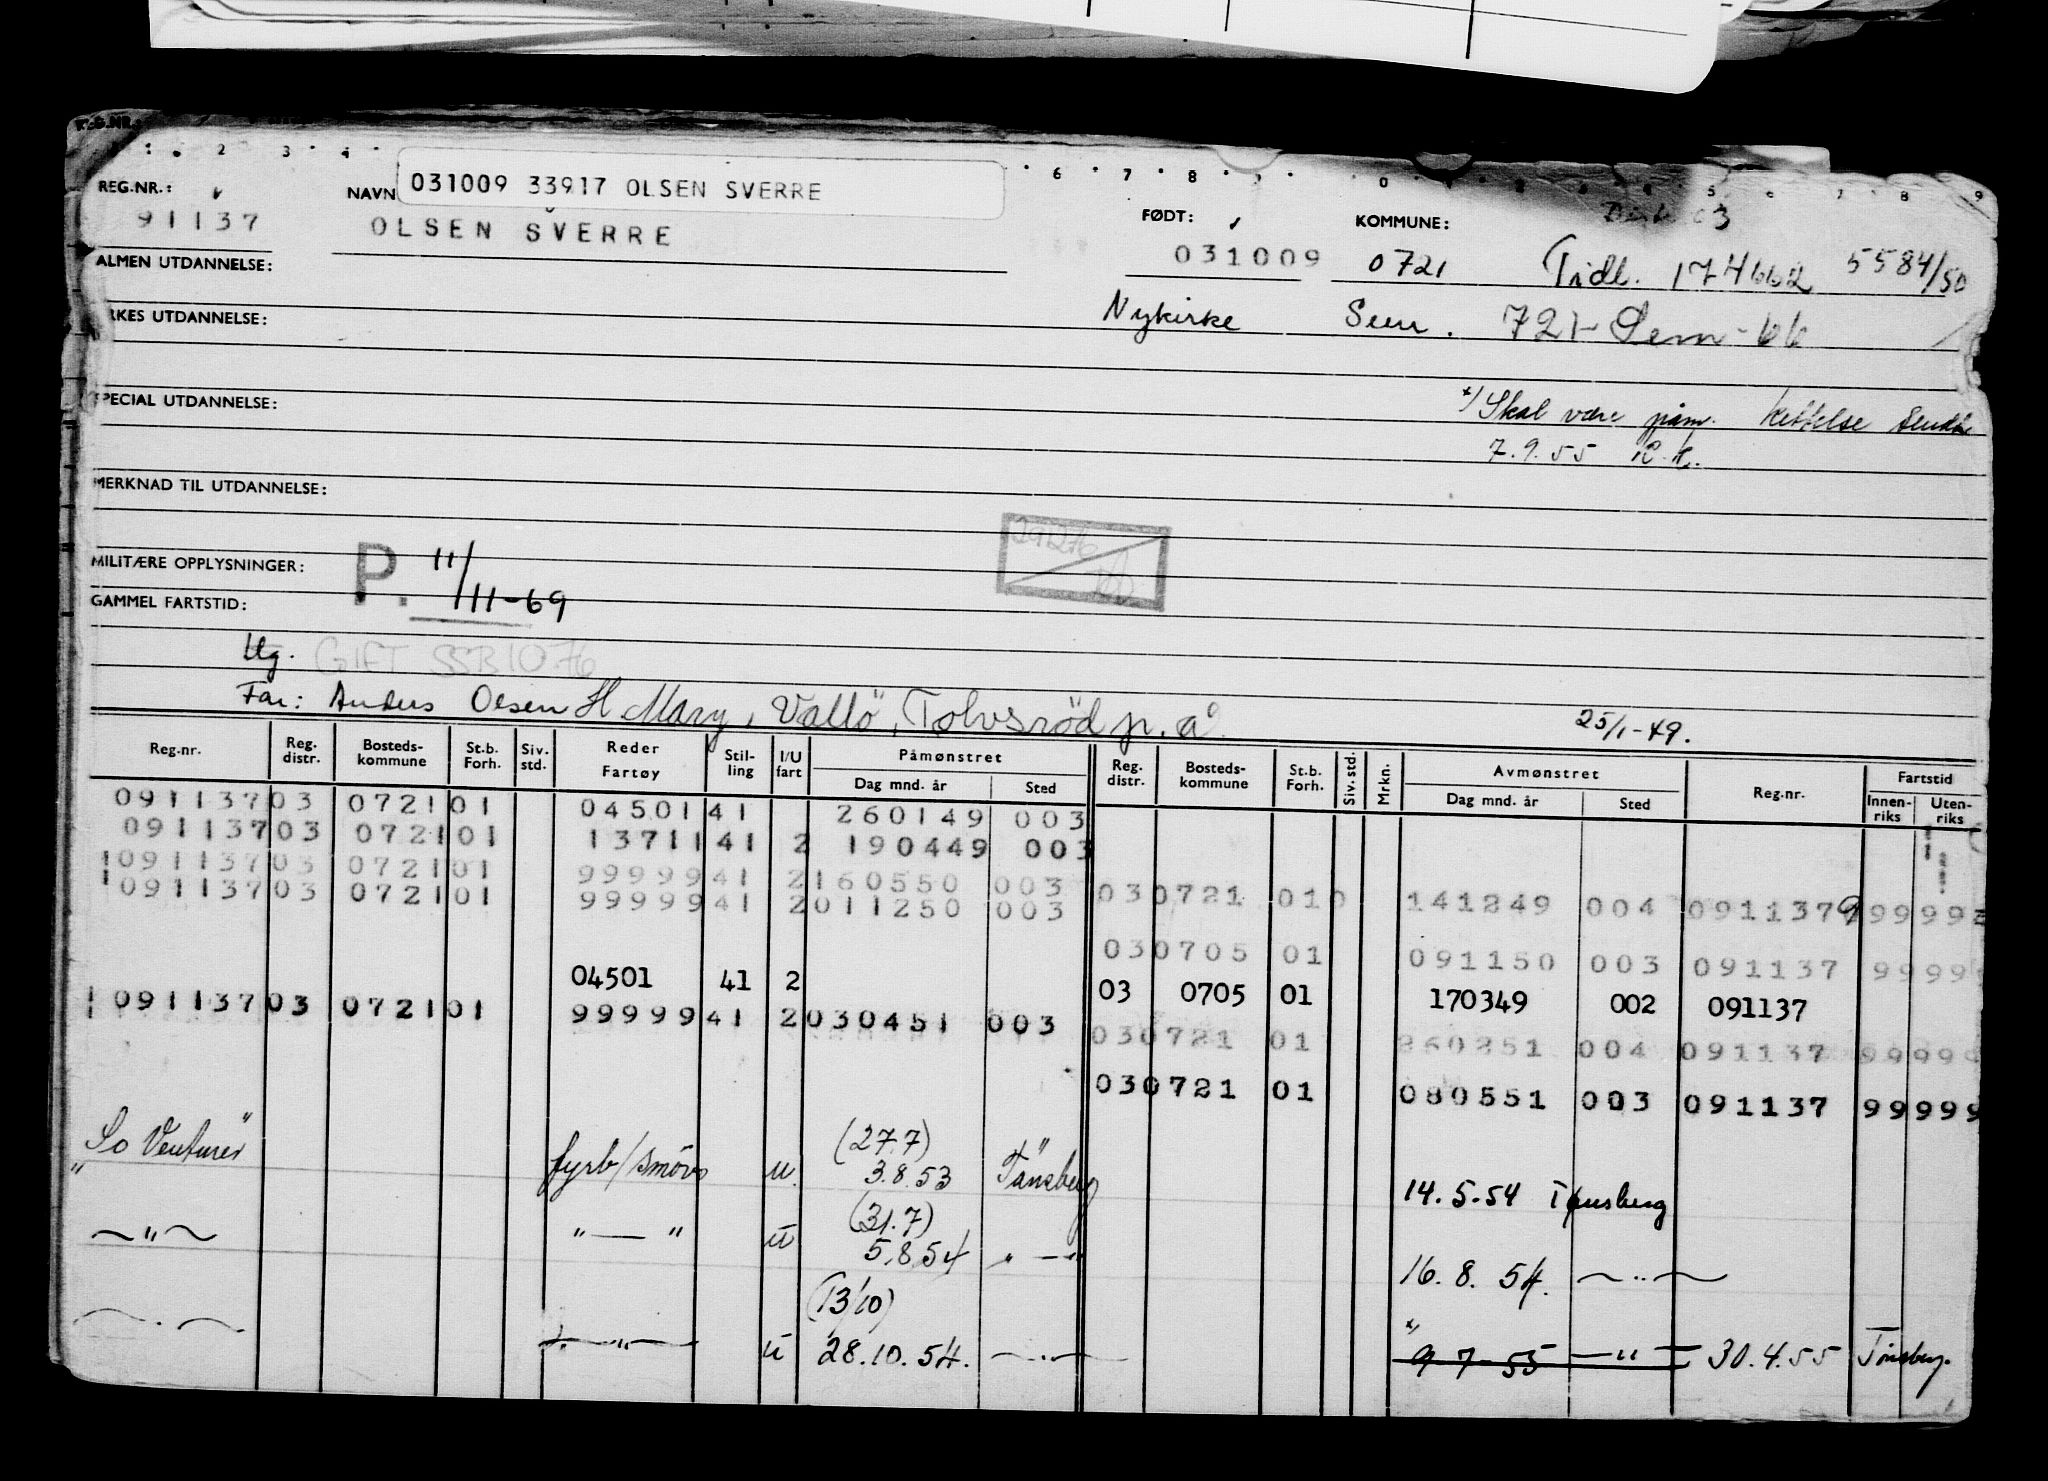 REG.NR.:
1 . 2 3 . 4 . 6 . 7 . 8 . 0 5 7 8 9
REG.NR.: NAVN 031009 33917 OLSEN SVERRE FØDT: KOMMUNE:
91137 OLSEN SVERRE 031009 0721 Tidl. 174662 5584/50
ALMEN UTDANNELSE:
Nykirke Sem. 721-Sem-66
RKES UTDANNELSE:
SPECIAL UTDANNELSE: x/ Skal være påm. Rettelse sendt
7.9.55 R.K.
MERKNAD TIL UTDANNELSE:
291276
MILITÆRE OPPLYSNINGER: P. 11/11-69
GAMMEL FARTSTID:
Ug. GIFT SSB 10.76
Far: Anders Olsen H Mary, Vallö, Tolvsröd p.å. 25/1-49.
Reg.nr. Reg. distr. Bosteds-kommune St.b. Forh. Siv. std. Reder Fartøy Stil-ling I/U fart Påmønstret Dag mnd. år Sted Reg. distr. Bosteds-kommune St.b. Forh. Siv. std. Mrkn. Avmønstret Dag mnd. år Sted Reg.nr. Fartstid Innen-riks Uten-riks
091137 03 0721 01 04501 41 260149 003
091137 03 0721 01 13711 41 2 190449 003
091137 03 0721 01 99999 41 2 160550 003
091137 03 0721 01 99999 41 2 011250 003 03 0721 01 0 141249 004 091137 9 9999
03 0705 01 091150 003 091137 9999
04501 41 2 03 0705 01 170349 002 091137
091137 03 0721 01 99999 41 2 030451 003 03 0721 01 260251 004 091137 99999
03 0721 01 080551 003 091137 99999
"So Venturer" fyrb/smøre u. (27.7) 3.8.53 Tönsberg 14.5.54 Tønsberg
—"— "—" u (31.7) 5.8.54 "—" 16.8.54. —"—
—"— —"— u (13/10) 28.10.54. —"— x/ 9 7-55 —"— 30.4.55 Tönsberg.